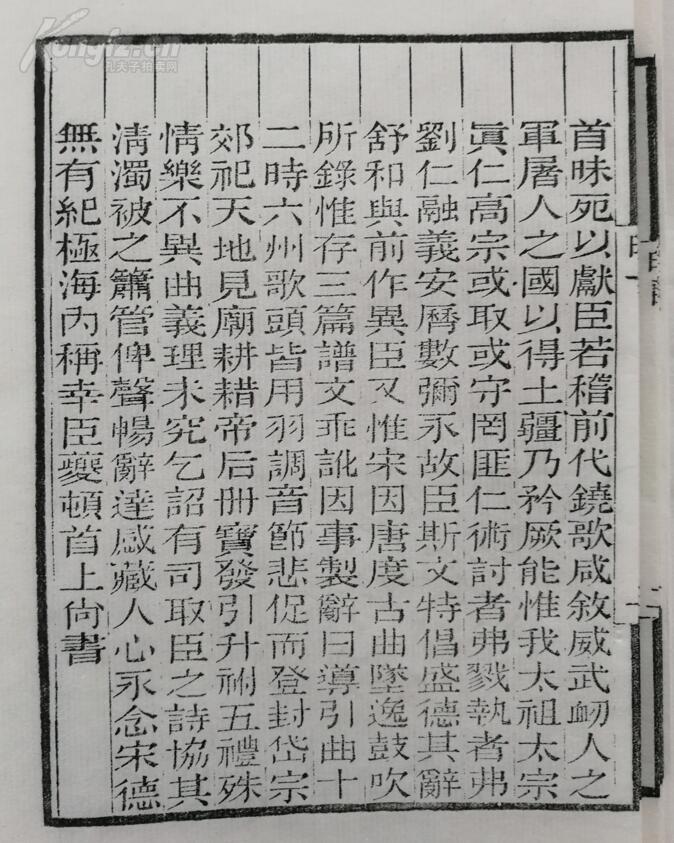 首昧死以獻臣若稽前代鐃歌咸敘威武衂人之
軍屠人之國以得土疆乃矜厥能惟我太祖太宗
眞仁高宗或取或守罔匪仁術討者弗戮執者弗
劉仁融義安曆數彌永故臣斯文特倡盛德其辭
舒和與前作異臣又惟宋因唐度古曲墜逸鼓吹
所錄惟存三篇譜文乖訛因事製辭曰導引曲十
二時六州歌頭皆用羽調音節悲促而登封岱宗
郊祀天地見廟耕耤帝后冊寶發引升祔五禮殊
情樂不異曲義理未究乞詔有司取臣之詩協其
淸濁被之簫管俾聲暢辭達感藏人心永念宋德
無有紀極海內稱幸臣夔頓首上尙書
Kongfz.cn
孔夫子拍卖网